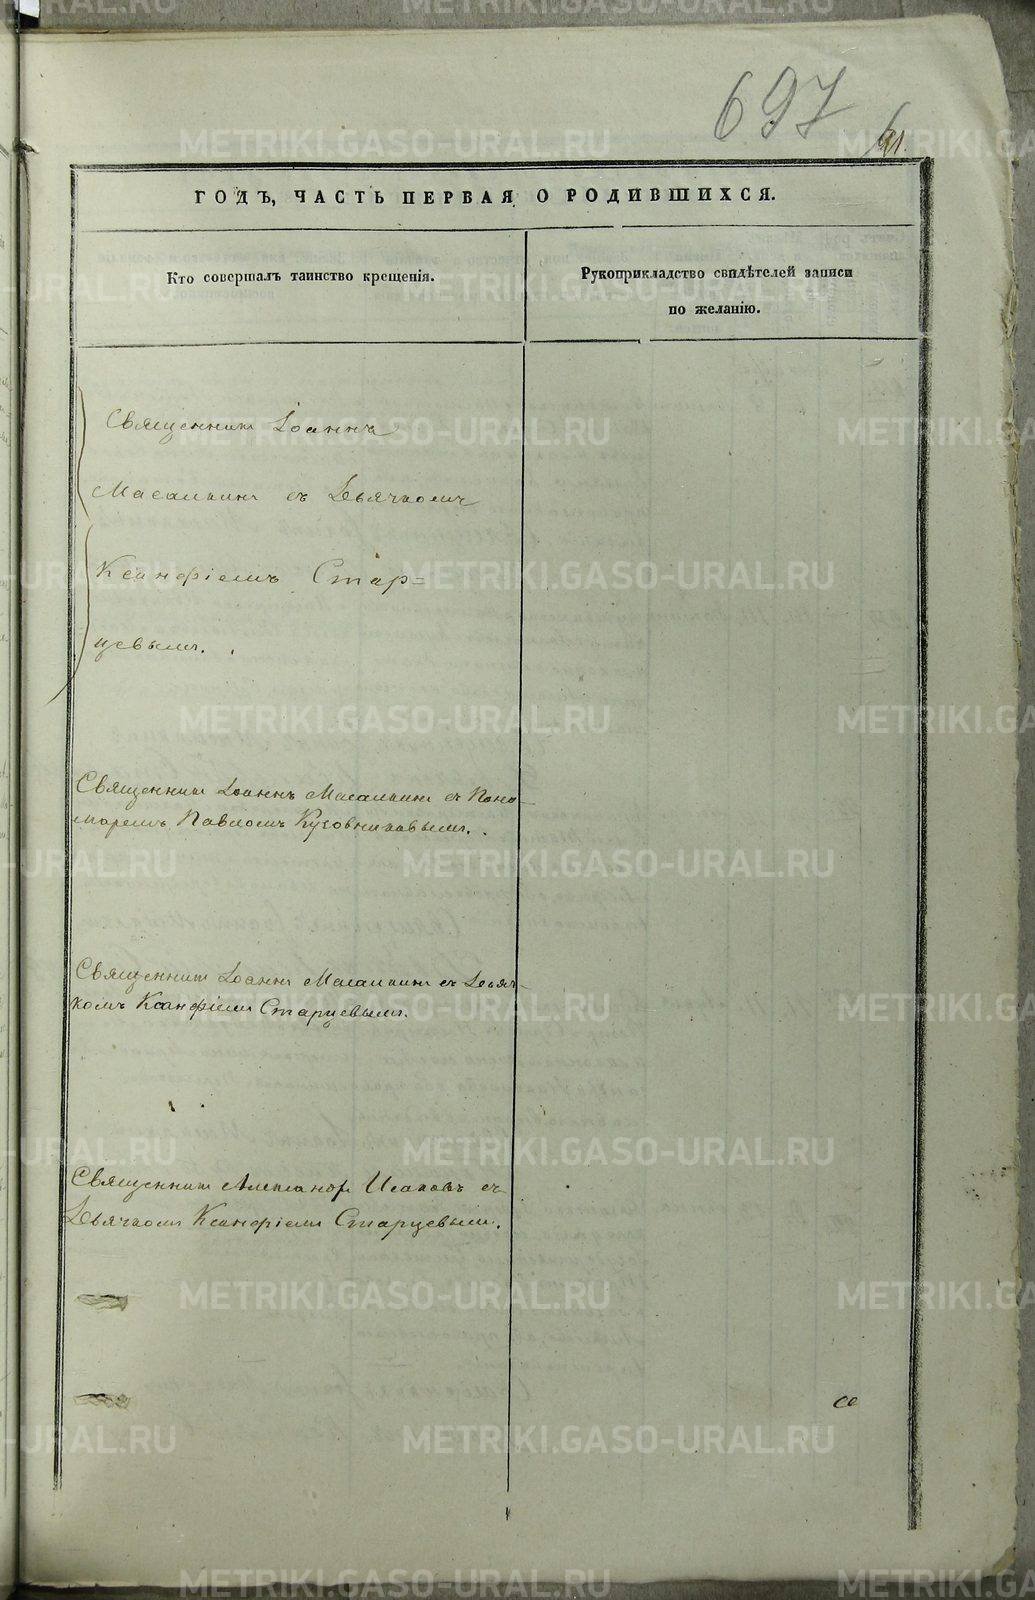 697
ГОДЪ, ЧАСТЬ ПЕРВАЯ О РОДИВШИХСЯ.
Кто совершалъ таинство крещенія.
Рукоприкладство свидѣтелей записи
по желанію.
Священникъ Іоаннъ
Масалкинъ съ Дьячкомъ
Ксанфіемъ Стар=
цевымъ.
Священникъ Іоаннъ Масалкинъ съ Поно
маремъ Павломъ Кузовниковымъ.
Священникъ Іоаннъ Масалкинъ съ Дьяч-
комъ Ксанфіемъ Старцевымъ.
Священникъ Александръ Исаковъ съ
Дьячкомъ Ксанфіемъ Старцевымъ.
METRIKI.GASO-URAL.RU